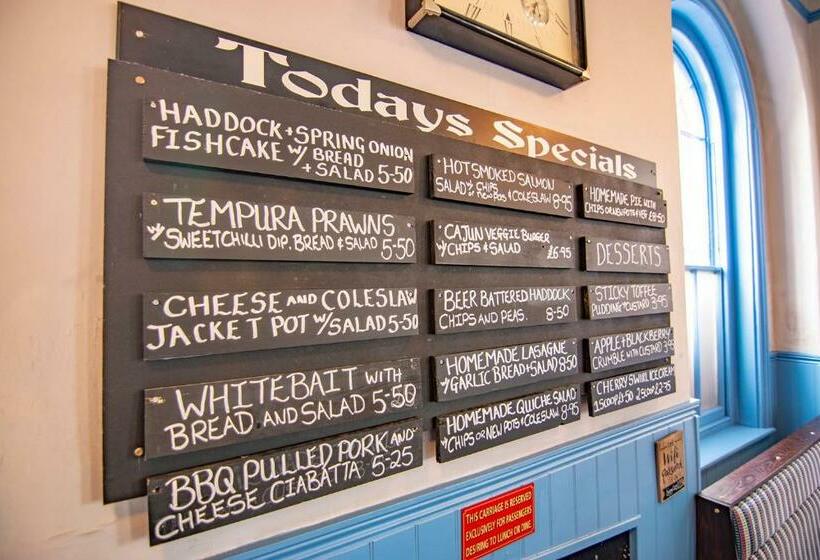 Todays Specials
HADDOCK + SPRING ONION
FISHCAKE W/ BREAD
+ SALAD 5-50
TEMPURA PRAWNS
W/ SWEETCHILLI DIP. BREAD & SALAD 5-50
CHEESE AND COLESLAW
JACKET POT W/ SALAD 5-50
WHITEBAIT WITH
BREAD AND SALAD 5-50
BBQ PULLED PORK AND
CHEESE CIABATTA 5-25
HOT SMOKED SALMON
SALAD W/ CHIPS
OR NEW POTS & COLESLAW 8-95
CAJUN VEGGIE BURGER
W/ CHIPS & SALAD £6-95
BEER BATTERED HADDOCK
CHIPS AND PEAS. 8-50
HOMEMADE LASAGNE 8-50
W/ GARLIC BREAD & SALAD
HOMEMADE QUICHE SALAD
W/ CHIPS OR NEW POTS & COLESLAW 8-95
HOMEMADE PIE WITH
CHIPS OR NEW POTS & VEG £8-50
DESSERTS
STICKY TOFFEE
PUDDING & CUSTARD 3-95
APPLE & BLACKBERRY
CRUMBLE WITH CUSTARD 3-95
CHERRY SWIRL ICE CREAM
1 SCOOP £1-50 2 SCOOP £2-95
THIS CARRIAGE IS RESERVED
EXCLUSIVELY FOR PASSENGERS
DESIRING TO LUNCH OR DINE.
Wifi